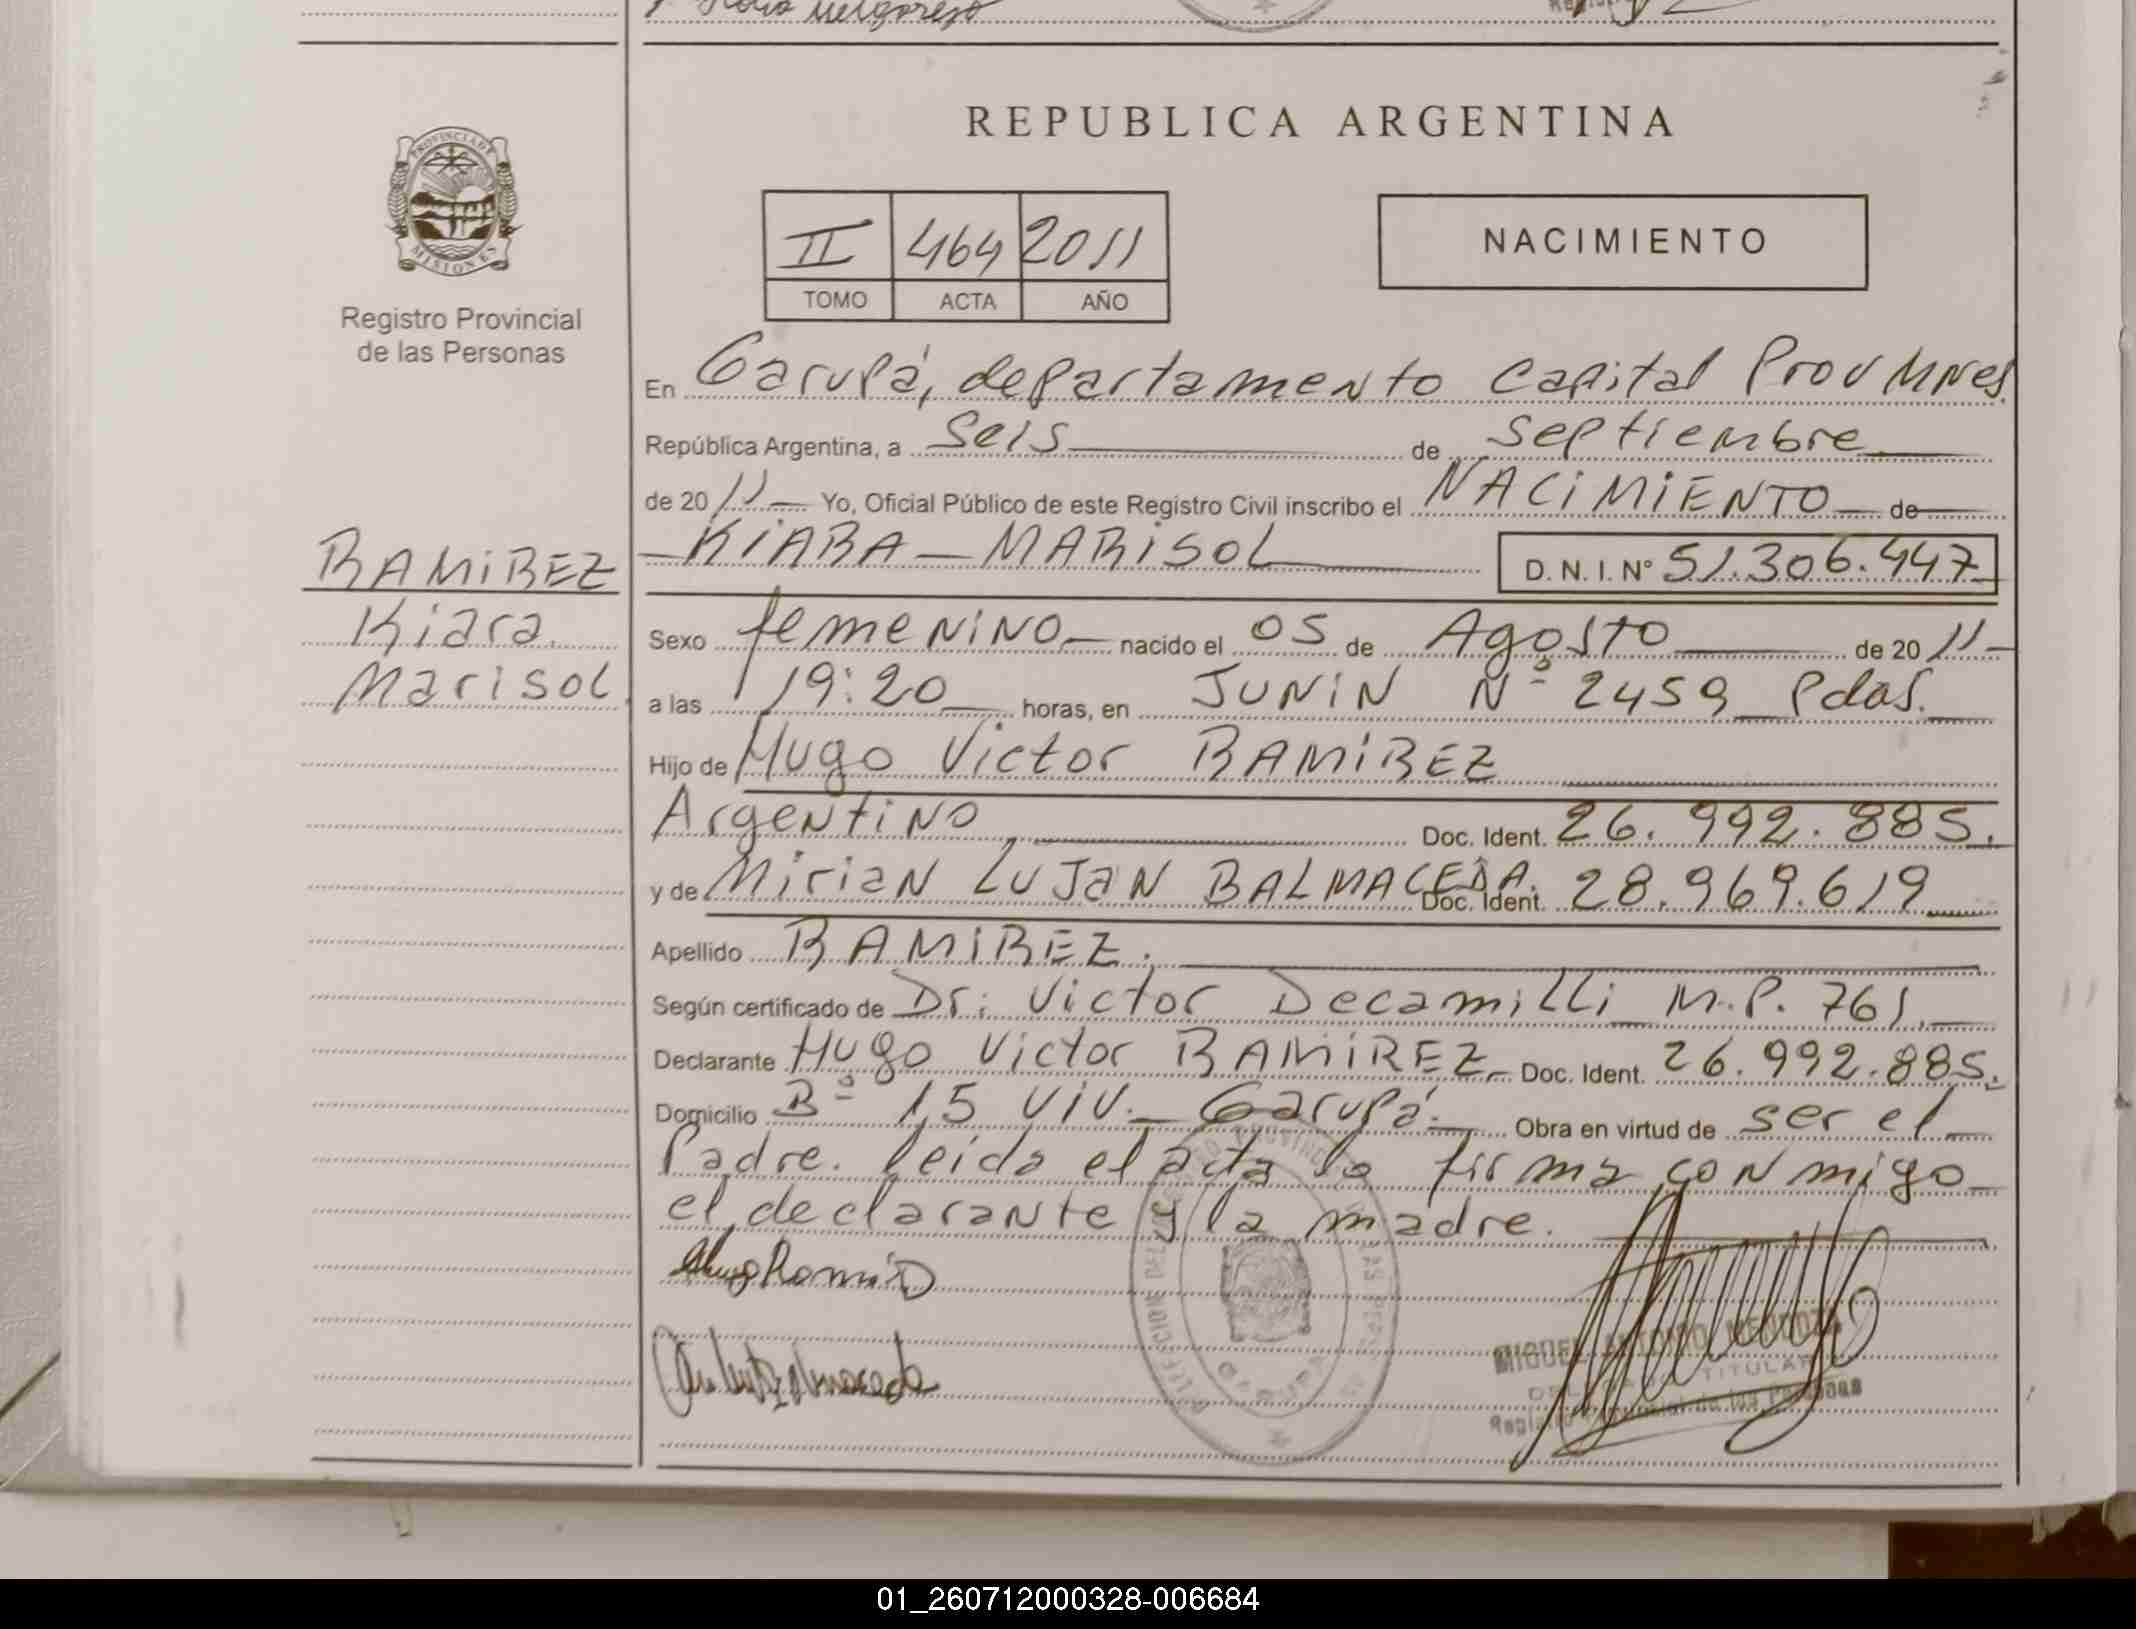 Melgarejo
REPUBLICA ARGENTINA
PROVINCIA DE
MISIONES
Registro Provincial
de las Personas
II 464 2011
TOMO ACTA AÑO
NACIMIENTO
En Garupá, departamento Capital Prov Mnes.
República Argentina, a Seis de septiembre
de 2011 Yo, Oficial Público de este Registro Civil inscribo el NACIMIENTO de
RAMIREZ
Kiara
Marisol
KIARA - MARISOL D. N. I. N° 51.306.447
Sexo femenino nacido el 05 de Agosto de 2011
a las 19:20 horas, en JUNIN Nº 2459 Pdas.
Hijo de Hugo Victor RAMIREZ
Argentino Doc. Ident. 26.992.885.
y de Mirian LUJAN BALMACEDA. Doc. Ident. 28.969.619
Apellido RAMIREZ.
Según certificado de Dr: Victor Decamilli M.P. 761.
Declarante Hugo Victor RAMIREZ Doc. Ident. 26.992.885.
Domicilio Bº 15 viv. Garupá. Obra en virtud de ser el
Padre. leida el acta la firma conmigo
el declarante y la madre.
MIGUEL ANTONIO MENDOZA
TITULAR
Registro Provincial de las Personas
01_260712000328-006684